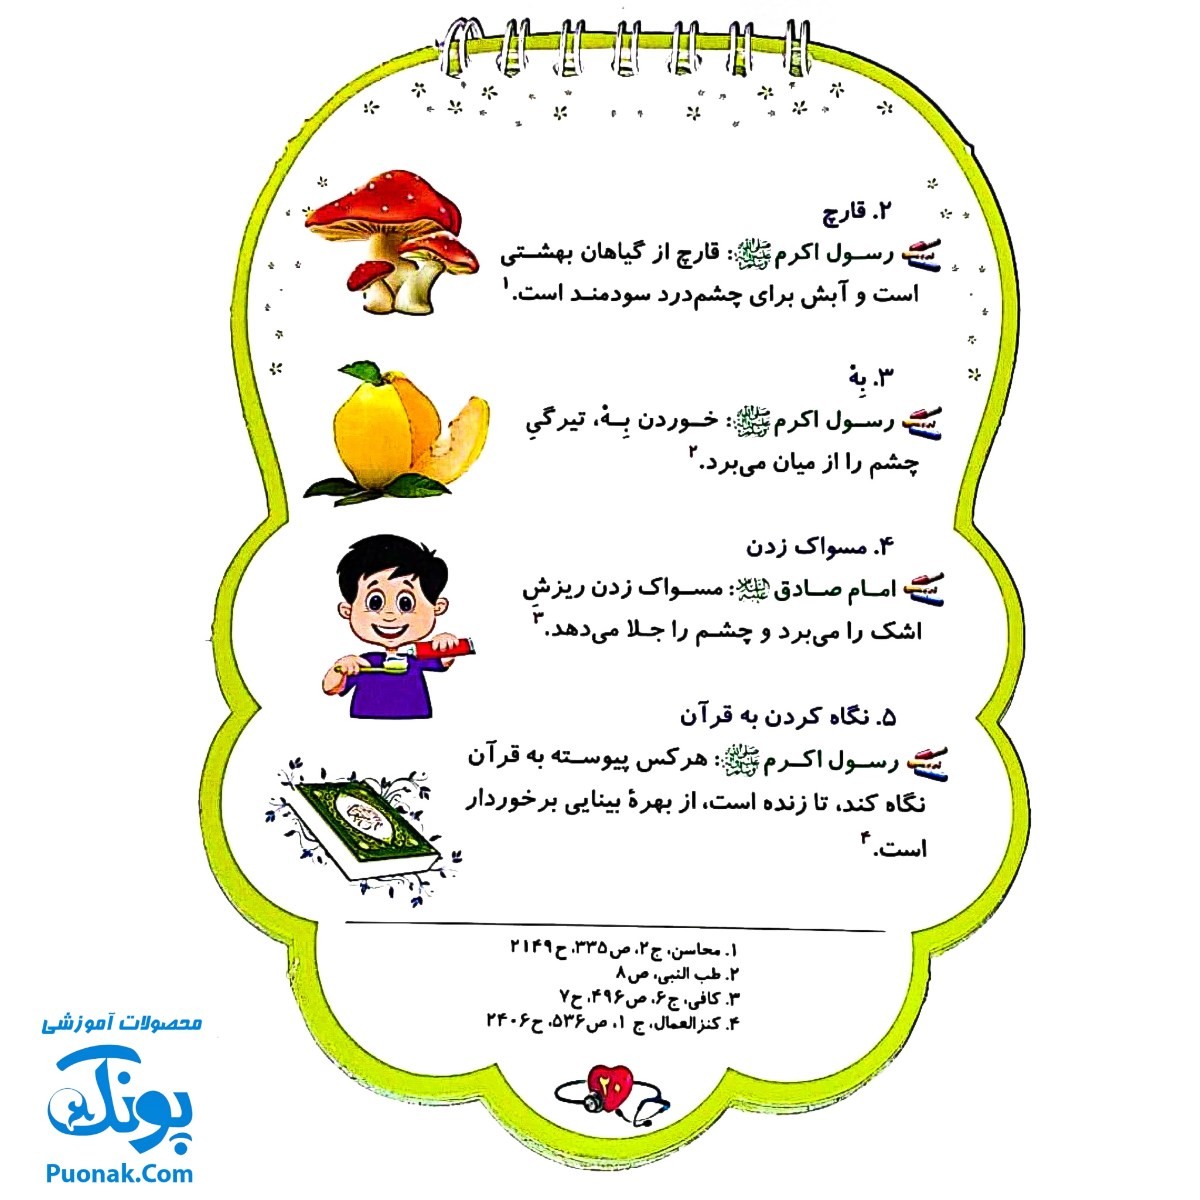 ۲. قارچ
رسول اکرم ﷺ: قارچ از گیاهان بهشتی
است و آبش برای چشم‌درد سودمند است.۱
۳. بِهْ
رسول اکرم ﷺ: خوردن بِهْ، تیرگیِ
چشم را از میان می‌برد.۲
۴. مسواک زدن
امام صادق علیه‌السلام: مسواک زدن ریزشِ
اشک را می‌برد و چشم را جلا می‌دهد.۳
۵. نگاه کردن به قرآن
رسول اکرم ﷺ: هرکس پیوسته به قرآن
نگاه کند، تا زنده است، از بهرهٔ بینایی برخوردار
است.۴
۱. محاسن، ج۲، ص۳۳۵، ح۲۱۴۹
۲. طب النبی، ص۸
۳. کافی، ج۶، ص۴۹۶، ح۷
۴. کنزالعمال، ج ۱، ص۵۳۶، ح۲۴۰۶
۲۰
محصولات آموزشی
پونک
Puonak.Com